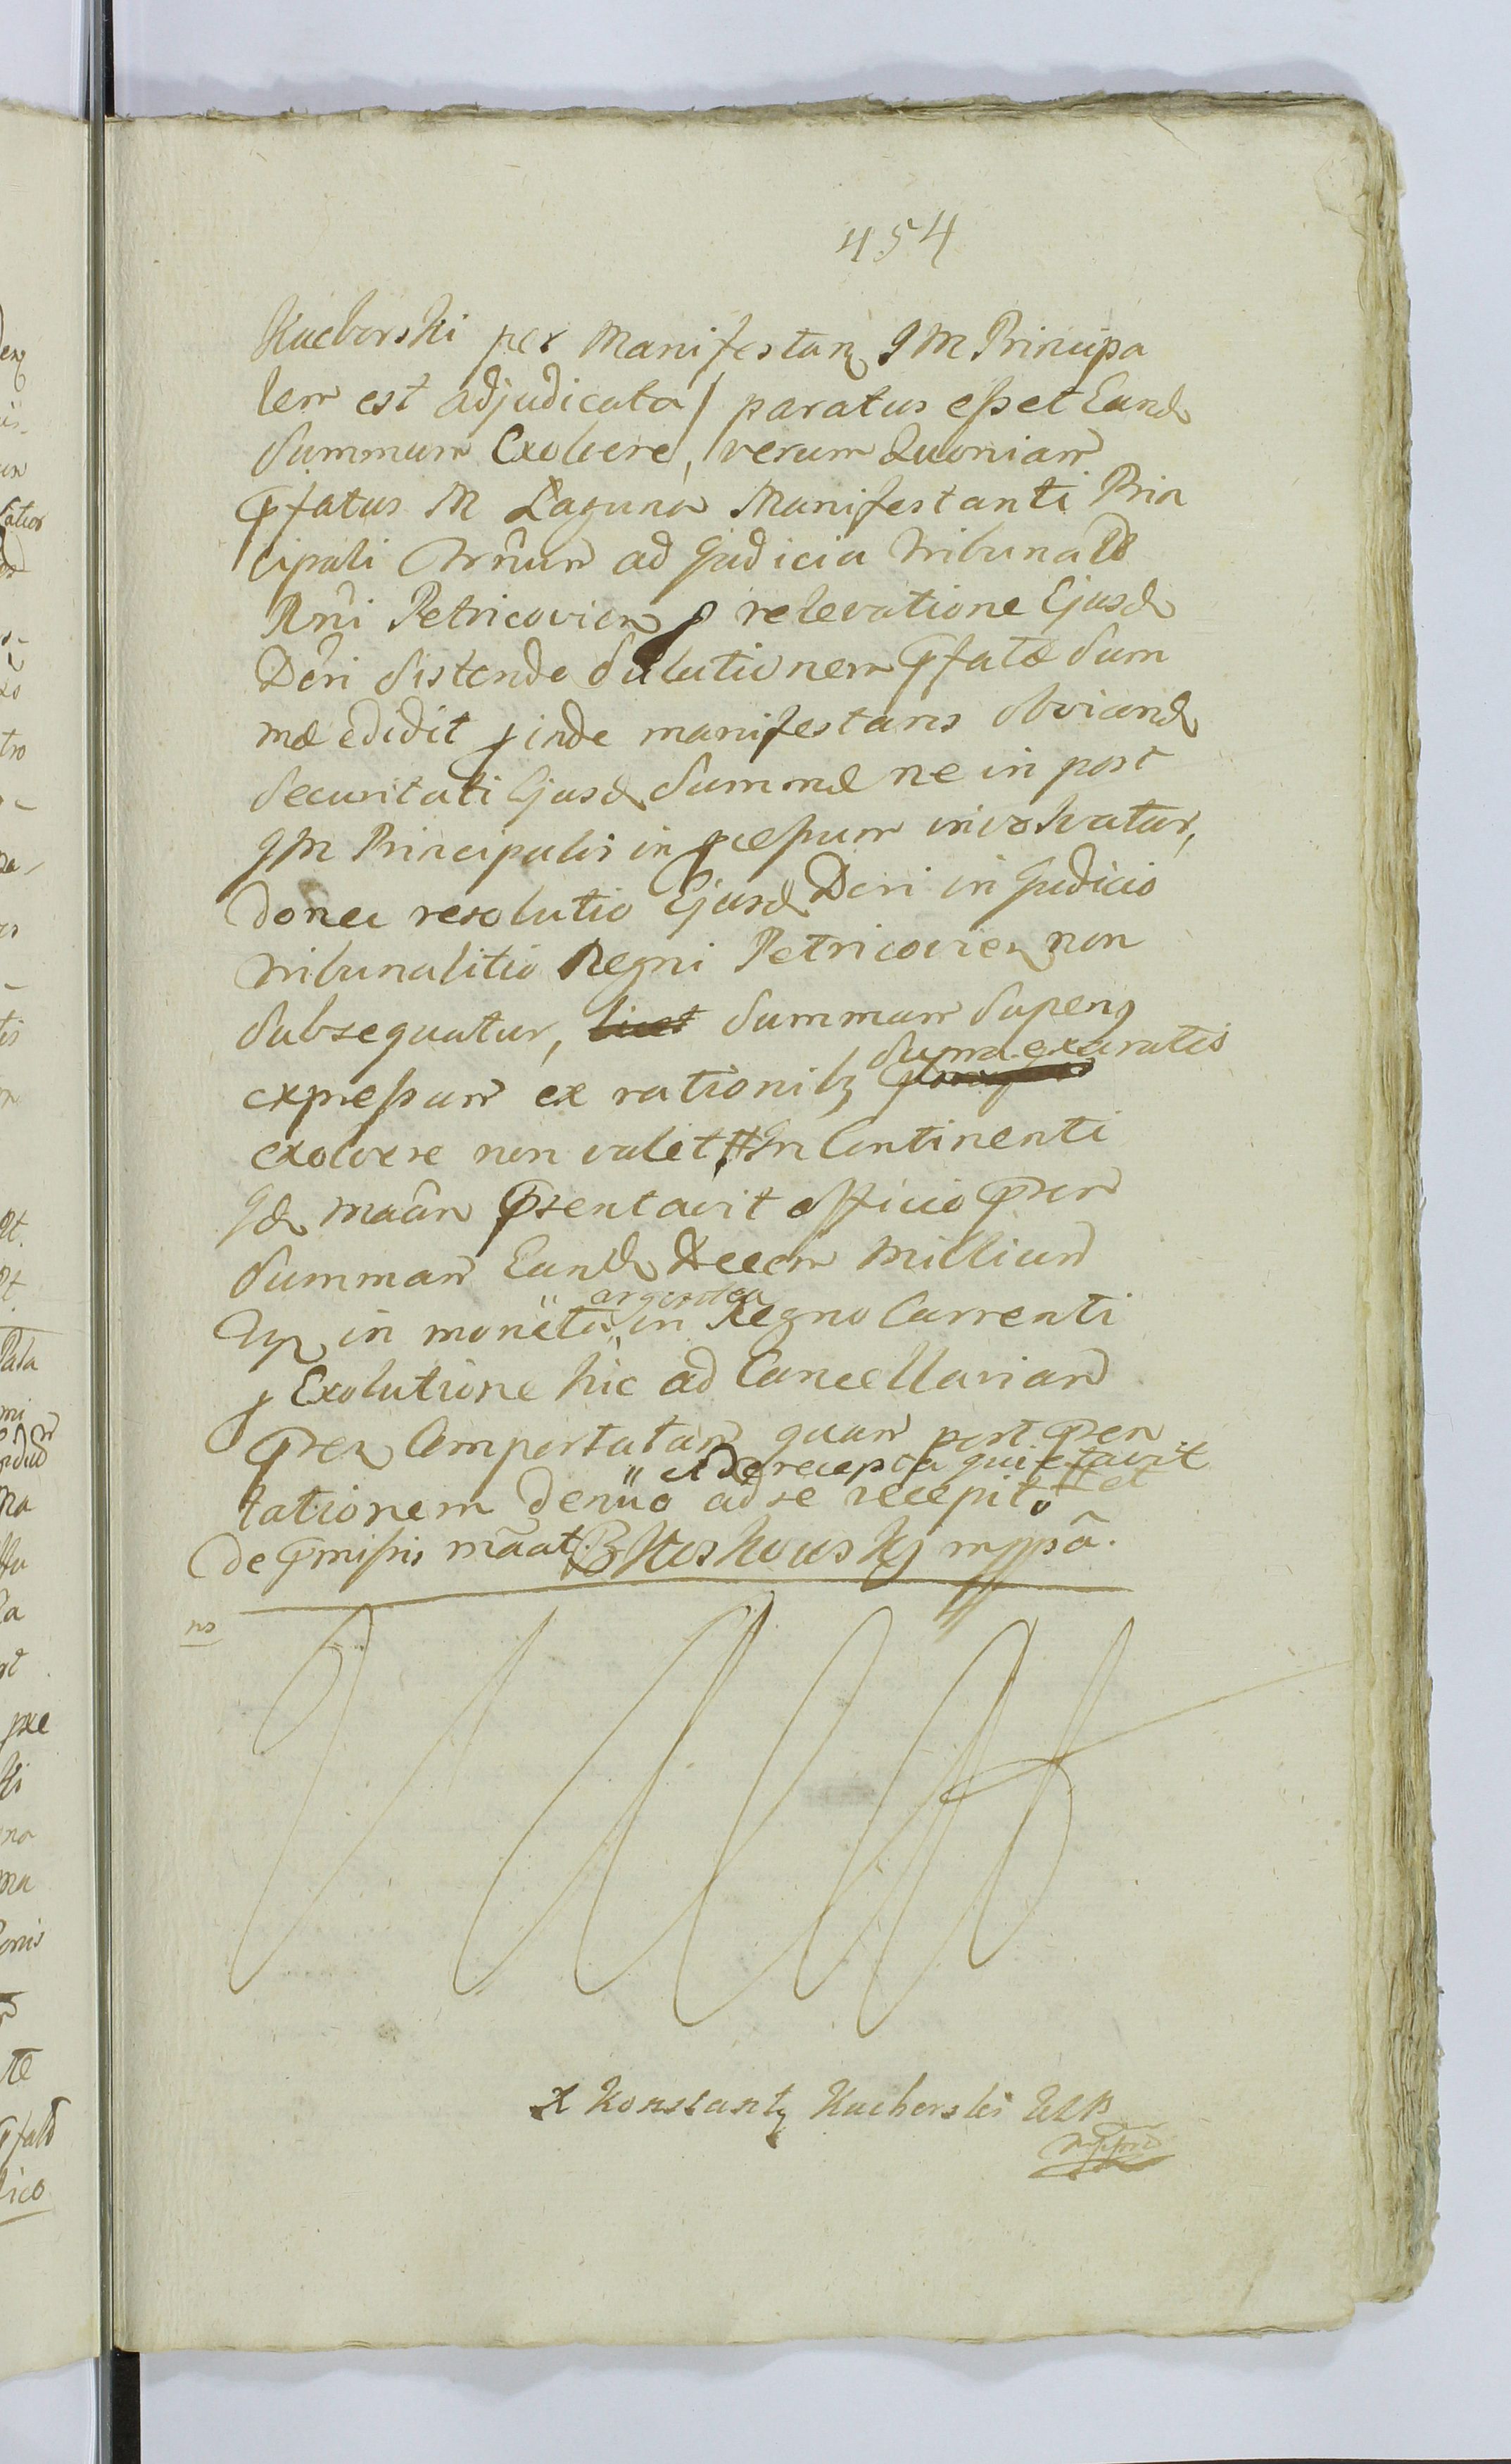 454
Kueborski per Manifestanꝫ G M Principa
lem est adjudicata / paratus eßet Eand
Summam Exolvere, verum Quoniam
Pfatus M Laguna Manifestanti Prin
cipali Trnum ad Judicia Tribunalis
Rni Petricovien p relevatione Ejusd
Dcri distende Solutionem Pfatæ Sum
mæ edidit p inde manifestans obviand
Securitati Ejusd Summæ ne in post
G M Principalis in pceßum involvatur,
donec resolutio Ejusd Dcri in Judicio
Tribunalitio Regni Petricovien non
Subsequatur, Summam Superꝫ
expreßam ex rationibꝫ Supra exaratis
exolvere non valet, # In Continenti
Id maãn Psentavit officio Psen
Summam Eand Decem Millium
in moneta " argentea " in Regno Currenti
p Exolutione hic ad Cancellariam
Psen Comportatam quam post Psen
tationem denuo " ad se recepit # et
de receptâ quietavit
de Pmißis mãat. B Koskowskj mppâ.
ns
X Konstanty Kucborski
mppria